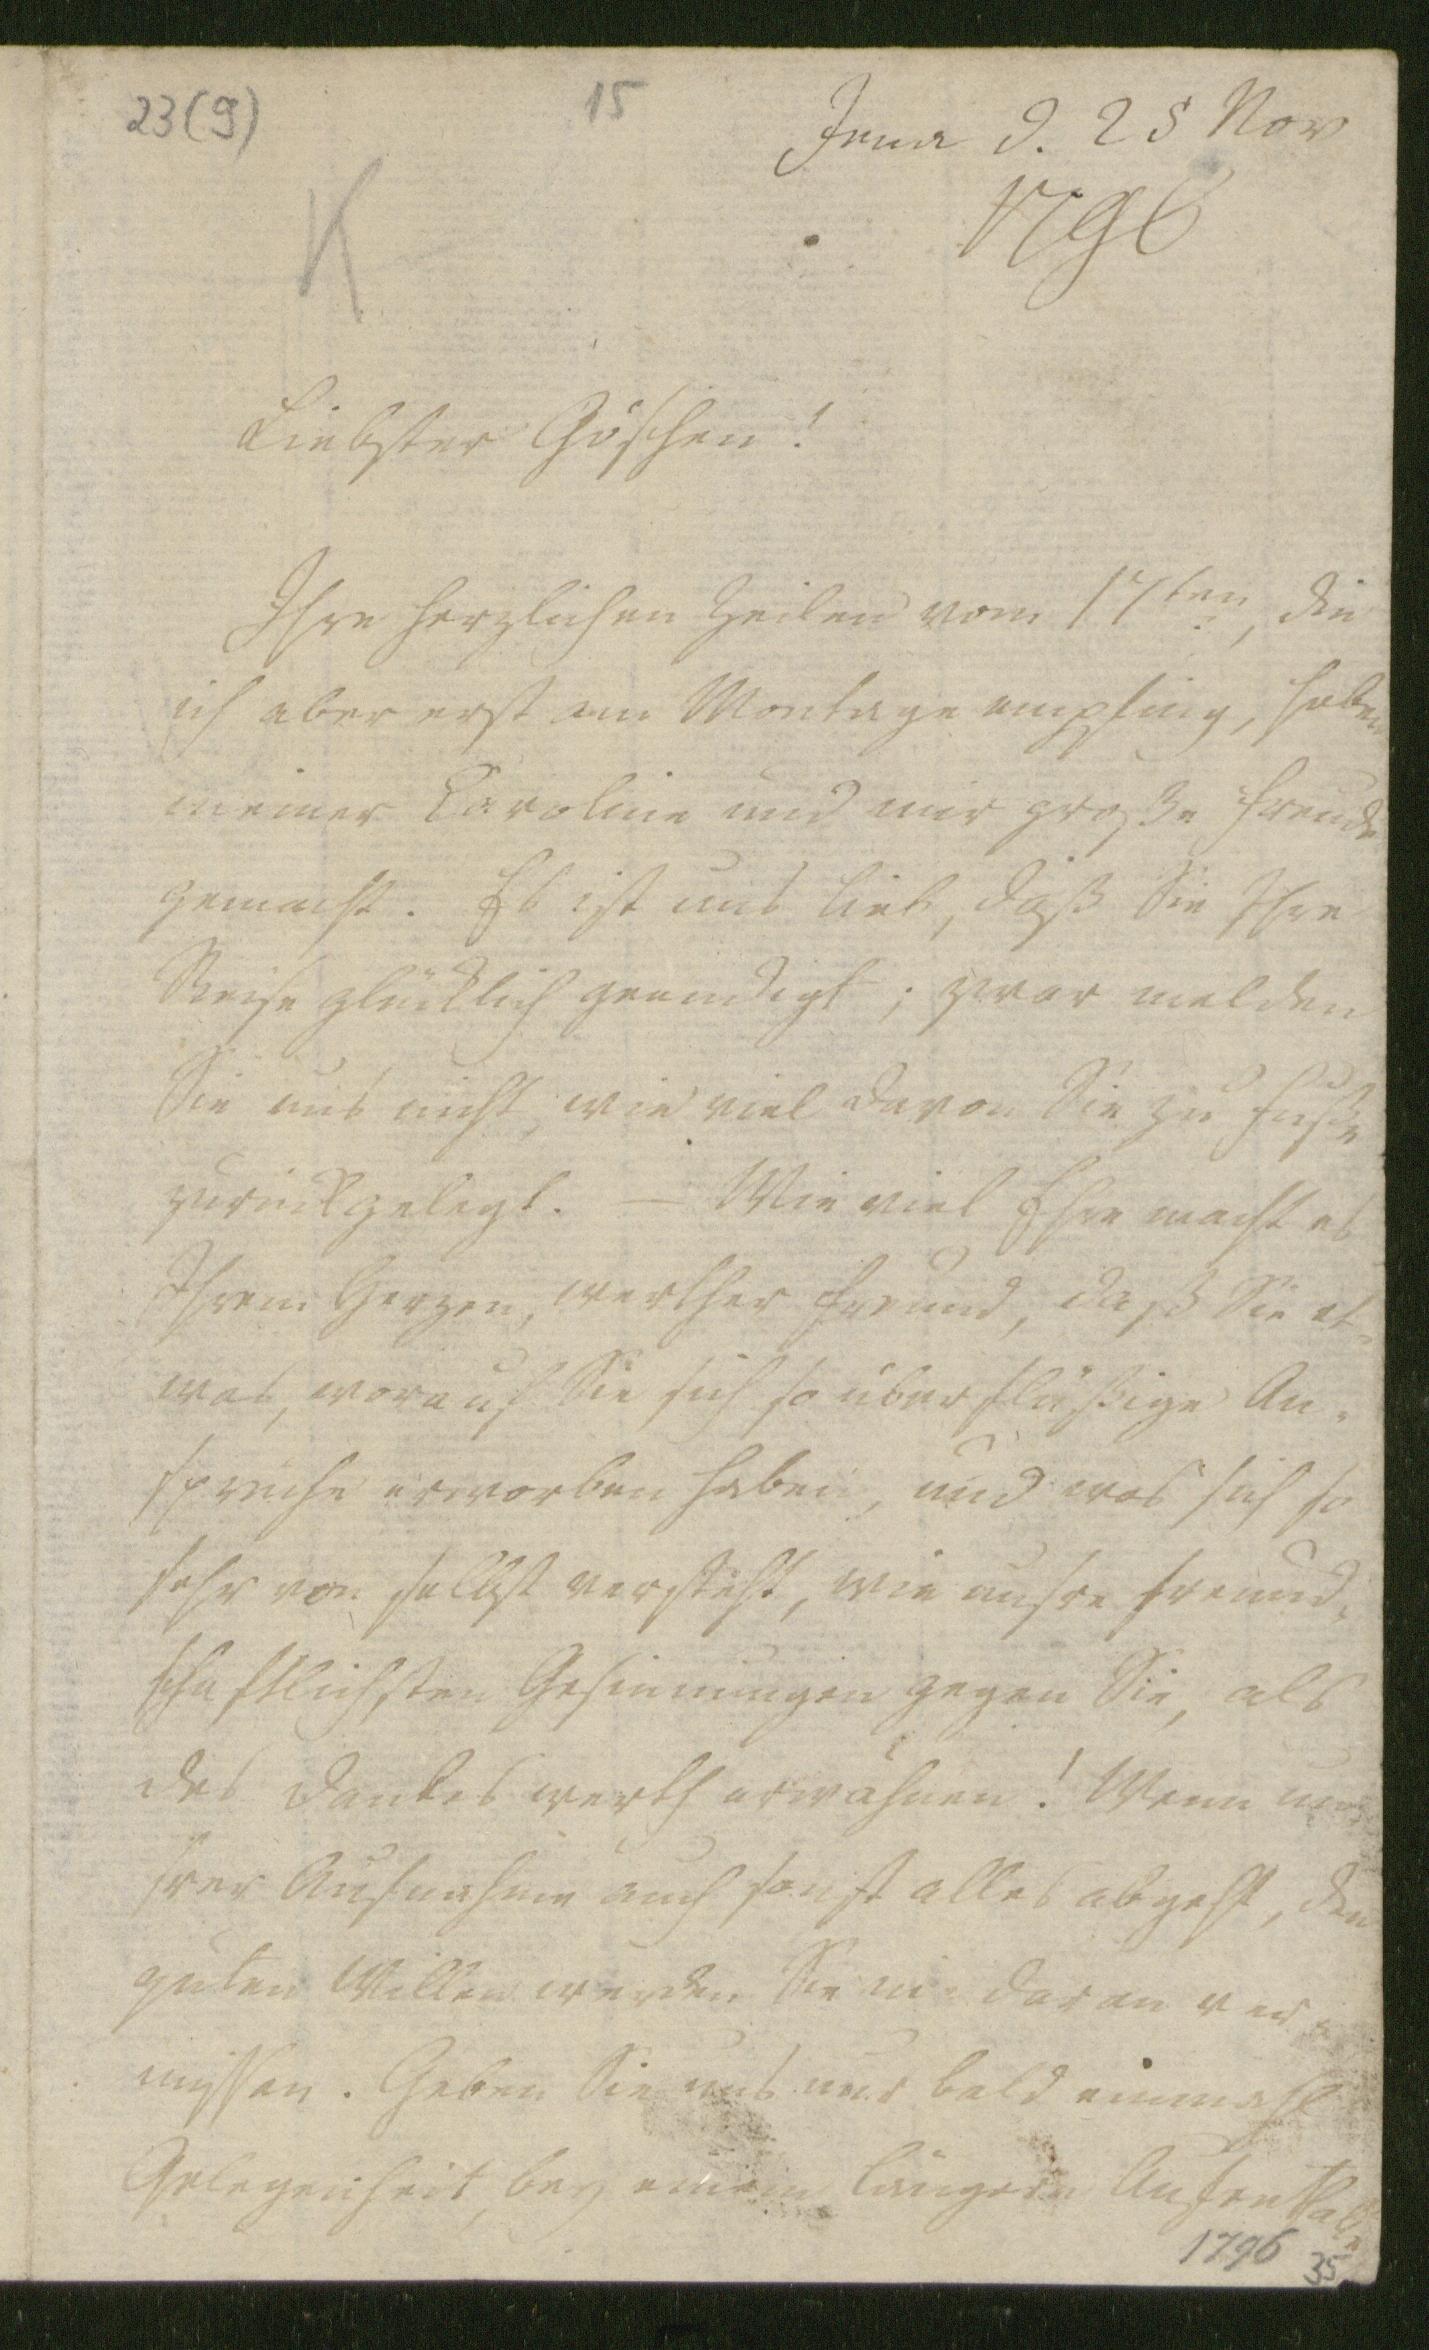 23(9)
15
Jena d. 25 Nov
1796
K
Liebster Göschen!
Ihre herzlichen Zeilen vom 17ten, die
ich aber erst am Montage empfing, haben
meiner Caroline und mir große Freude
gemacht. Es ist uns lieb, daß Sie Ihre
Reise glücklich geendigt; zwar melden
Sie uns nicht, wie viel davon Sie zu Fuße
zurückgelegt. — Wie viel Ehre macht es
Ihrem Herzen, werther Freund, daß Sie et-
was, worauf Sie sich so überflüßige An-
sprüche erworben haben, und was sich so
sehr von selbst versteht, wie unsre freund-
schaftlichsten Gesinnungen gegen Sie, als
des Dankes werth erwähnen! Wenn un-
srer Aufnahme auch sonst alles abgeht, den
guten Willen werden Sie nie daran ver-
missen. Geben Sie uns nur bald einmahl
Gelegenheit, bey einem längern Aufenthalt
1796
35